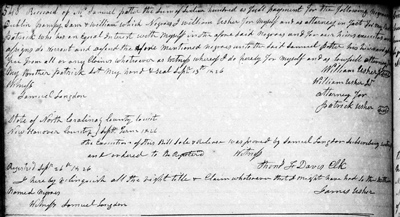 Received of Mr Samuel Potter the Sum of Sixteen hundred as full payment for the following Negroes
Dublin Pompey Sam & William which Negroes I William Usher for myself and as attorney in fact for my
Patrick who has an Equal interest with myself in the aforesaid Negroes and for our heirs executors
assigns do warrant and defend the above Mentioned Negroes unto the said Samuel Potter his heirs and assigns
free from all or any claims whatsoever as witness whereof I do hereby for myself and as lawful attorney
My brother Patrick Set My hand & Seal Septr 13th 1826
William Usher
Witness
William Usher Jr
Samuel Langdon
attorney for
Patrick Usher
State of North Carolina County Court
New Hanover County Septr Term 1826
the Execution of this Bill Sale & Release was proved by Samuel Langdon the Subscribing witness
and ordered to be Registered
Witness
Thos F Davis Clk
Registered Septr 26th 1826
I here by relinquish all the right title & Claim whatsoever that I might have had to the within
Named Negroes
James Usher
Witness Samuel Langdon